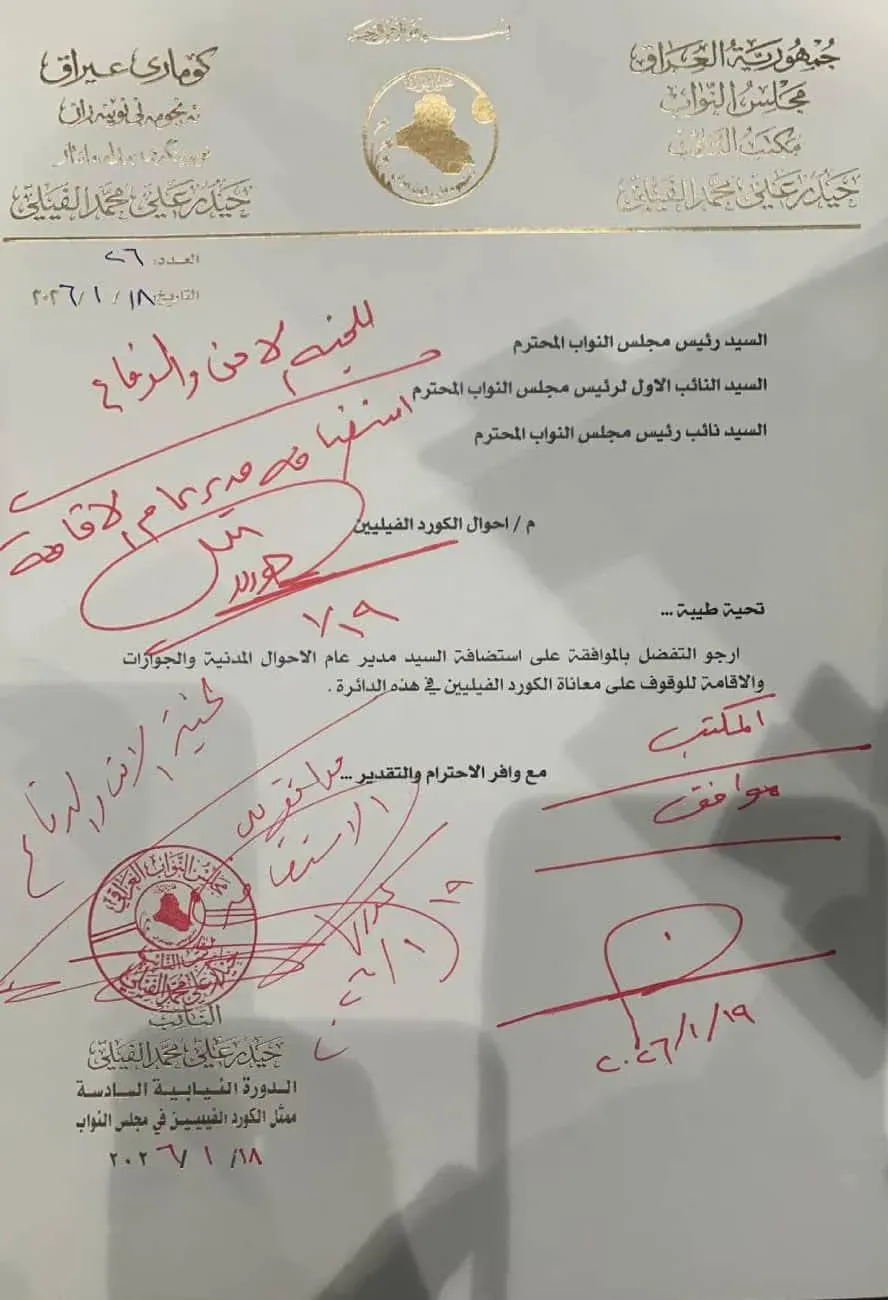 بسم الله الرحمن الرحيم
جمهورية العراق
مجلس النواب
مكتب النائب
حيدر علي محمد الفيلي
كۆماری عیراق
ئه نجومه نی نوینه ران
حيدر علي محمد الفيلي
العدد: ٢٦
التاريخ: ١٨ / ١ / ٢٠٢٦
السيد رئيس مجلس النواب المحترم
السيد النائب الاول لرئيس مجلس النواب المحترم
السيد نائب رئيس مجلس النواب المحترم
للجنة الامن والدفاع
استضافة مدير عام الاقامة
م / احوال الكورد الفيليين
١/١٩
تحية طيبة ...
ارجو التفضل بالموافقة على استضافة السيد مدير عام الاحوال المدنية والجوازات
والاقامة للوقوف على معاناة الكورد الفيليين في هذه الدائرة .
المكتب
موافق
مع وافر الاحترام والتقدير ...
لجنة الامن والدفاع
موافق
١٩
٢٠٢٦/١/١٩
مجلس النواب العراقي
مكتب النائب
حيدر علي محمد الفيلي
النائب
حيدر علي محمد الفيلي
الدورة النيابية السادسة
ممثل الكورد الفيليين في مجلس النواب
١٨/ ١ /٢٠٢٦